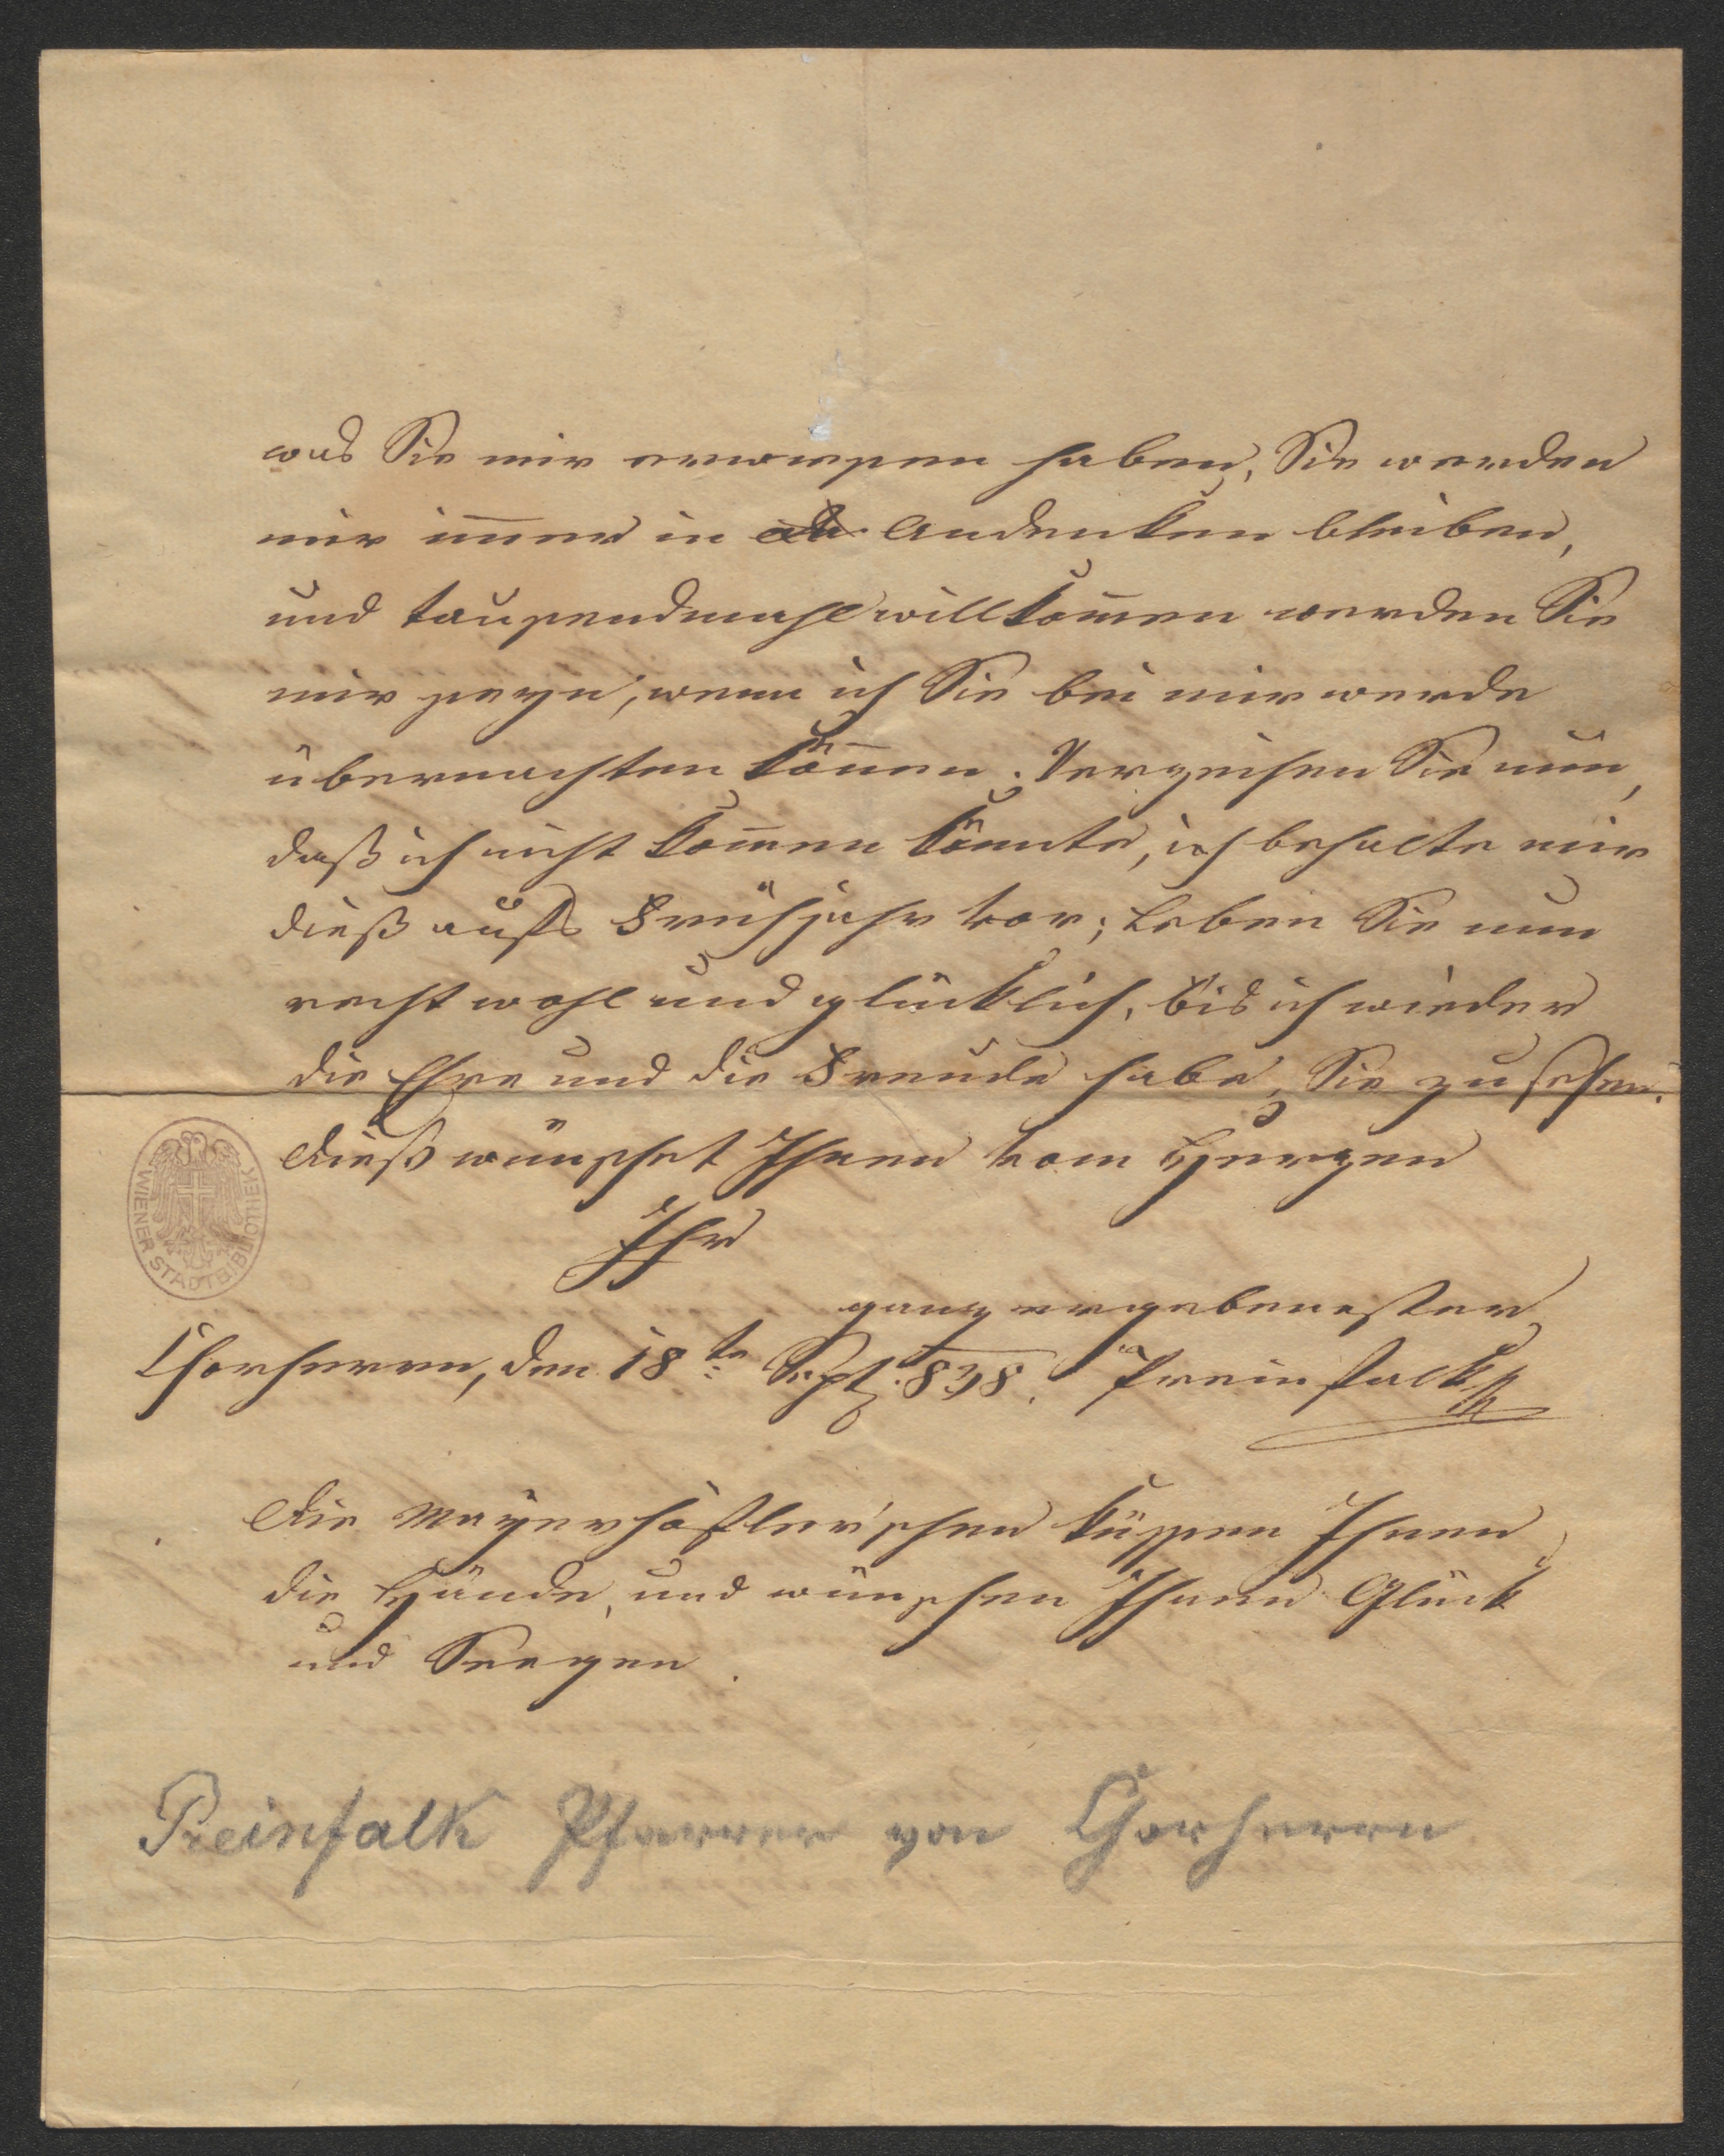 was Sie mir erwiesen haben, Sie werden
mir im̅er in Andenken bleiben,
und tausendmahl willkom̅en werden Sie
mir seyn, wenn ich Sie bei mir werde
übernachten kön̅en. Verzeihen Sie nun,
daß ich nicht kom̅en konnte, ich behalte mir
dieß aufs Frühjahr vor; Leben Sie nun
recht wohl und glücklich, bis ich wieder
die Ehre und die Freude habe, Sie zu sehen.
Dieß wünschet Ihnen vom Herzen
Ihr
ganz ergebenester
Chorherrn, den 18te Sept. 838. Preinfalk
WIENER STADTBIBLIOTHEK
Die Mayerhöflerschen küssen Ihnen
die Hände, und wünschen Ihnen Glück
und Seegen.
Preinfalk Pfarrer von Chorherrn